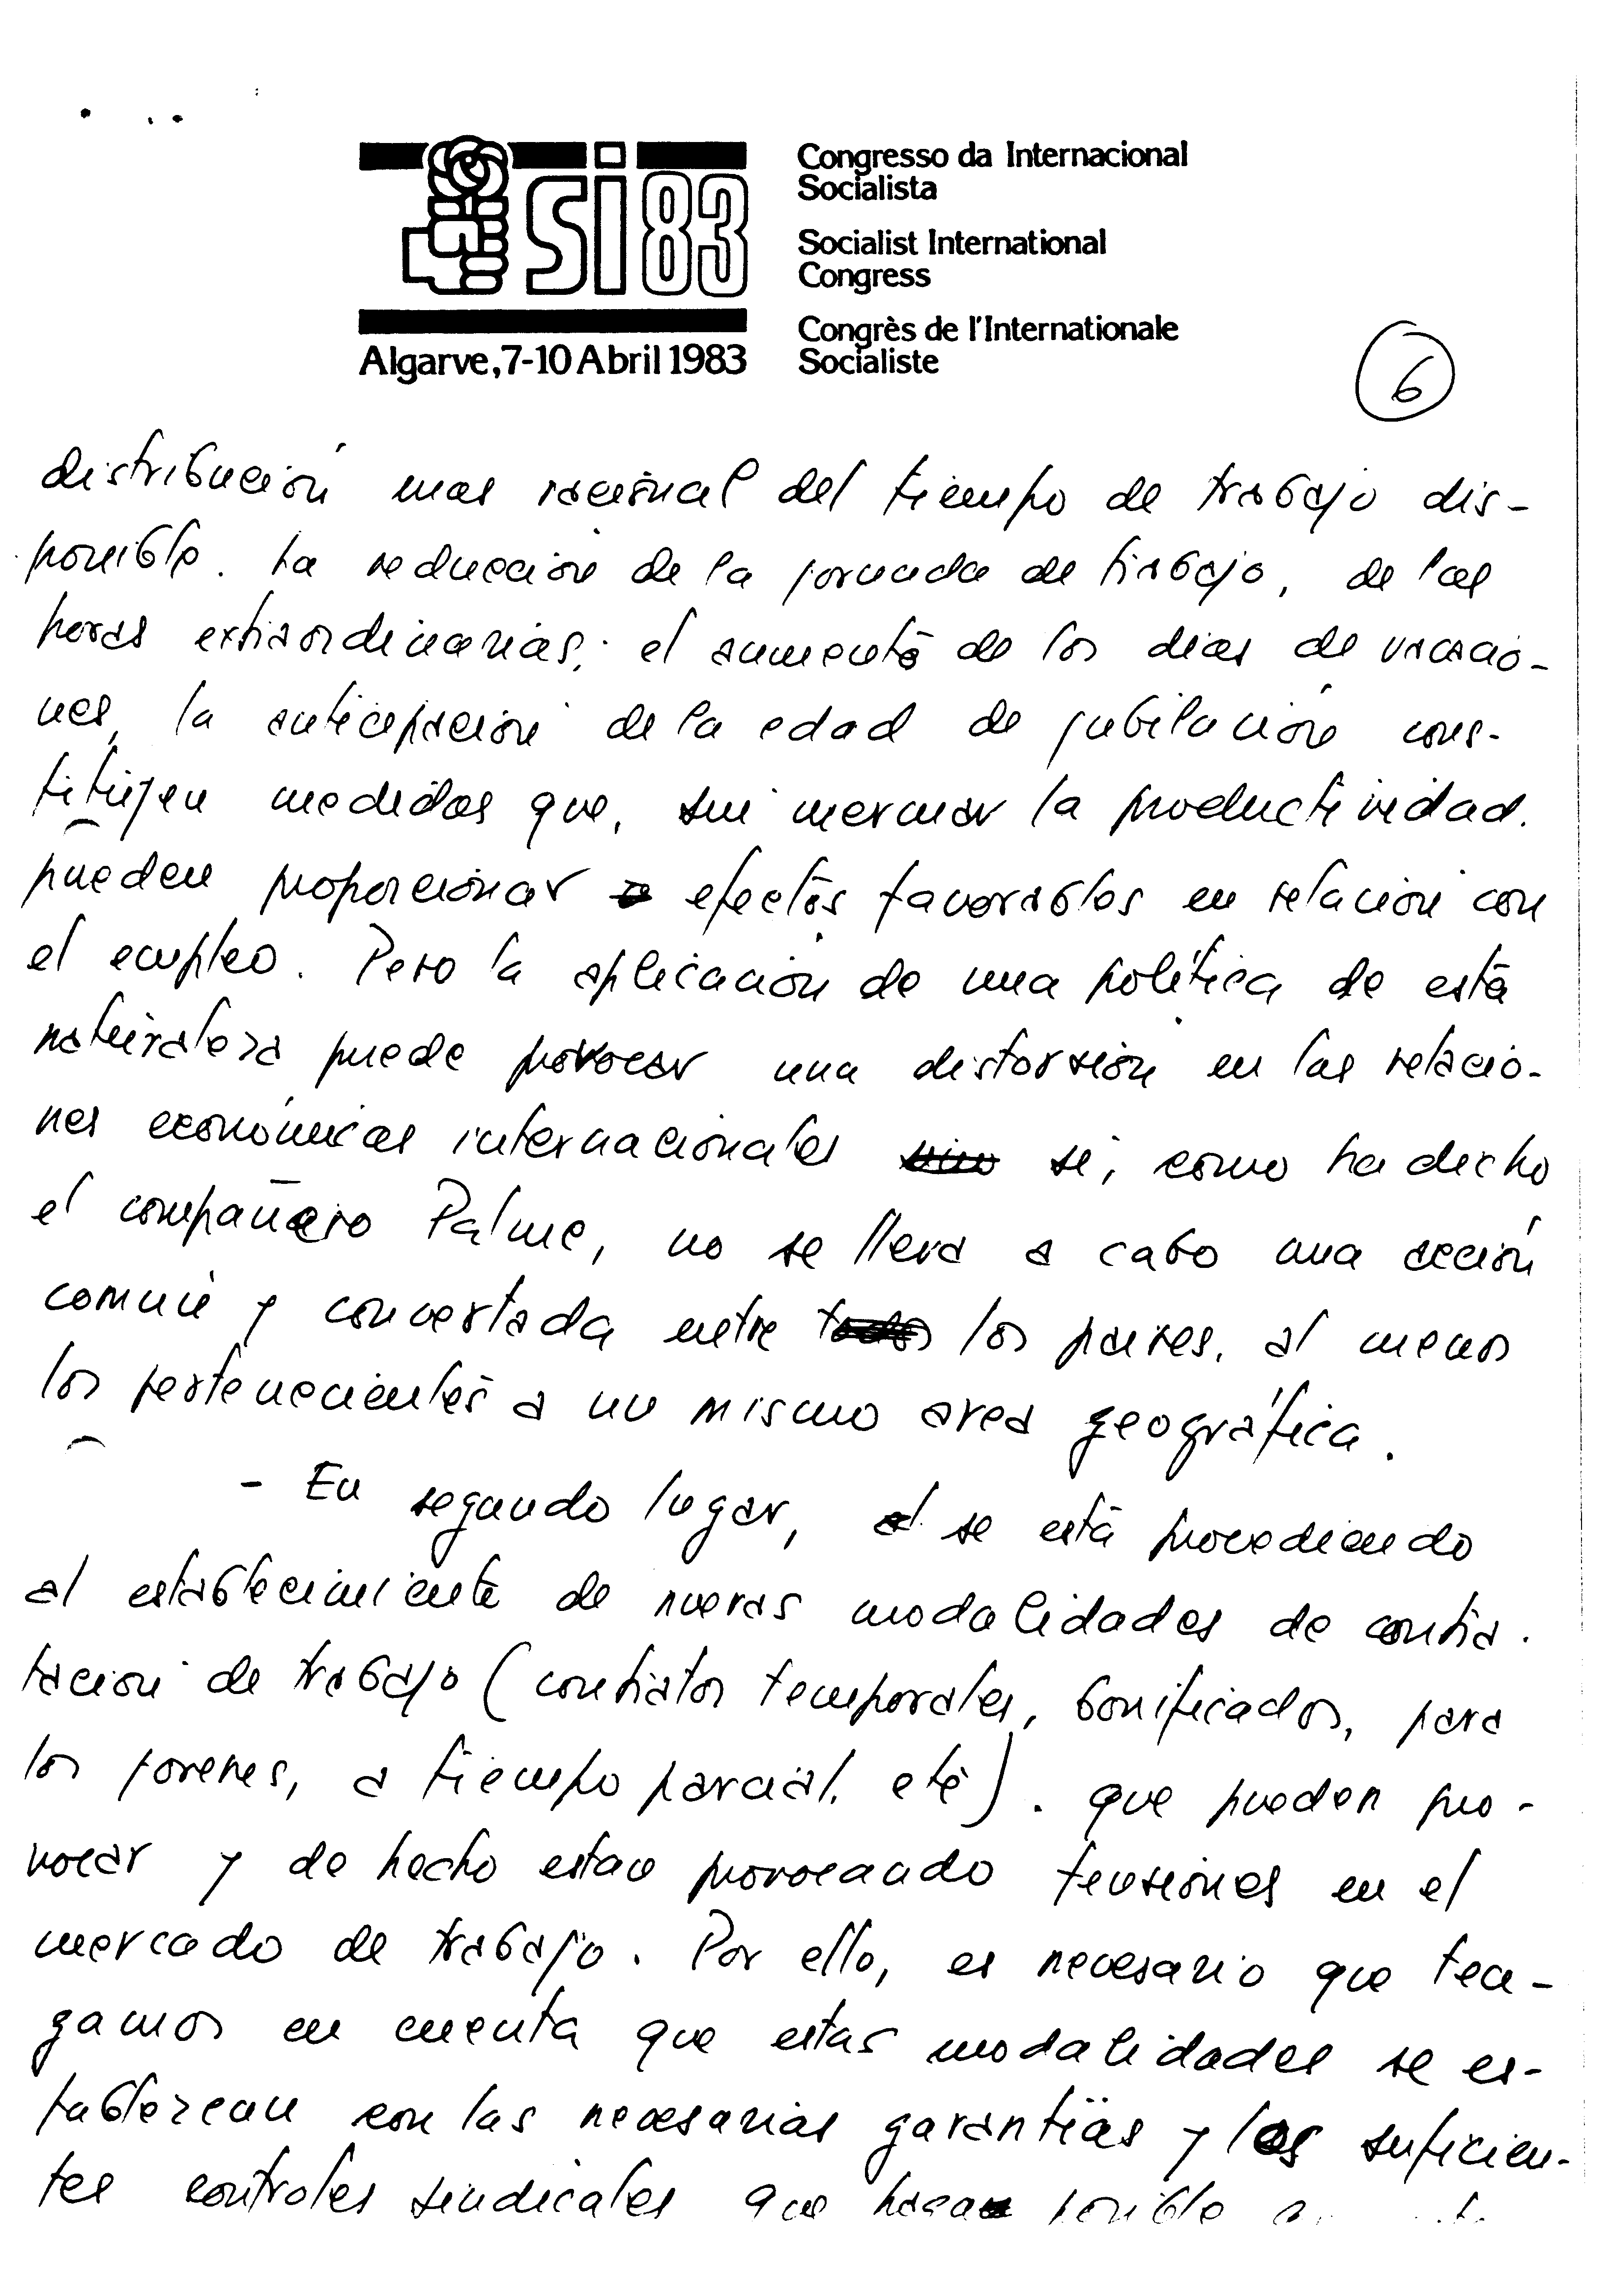 si83
Algarve, 7-10 Abril 1983
Congresso da Internacional
Socialista
Socialist International
Congress
Congrès de l'Internationale
Socialiste
6
distribución mas racional del tiempo de trabajo dis-
ponible. La reducción de la jornada de trabajo, de las
horas extraordinarias; el aumento de los dias de vacacio-
nes, la anticipación de la edad de jubilación cons-
tituyen medidas que, sin mermar la productividad,
pueden proporcionar efectos favorables en relación con
el empleo. Pero la aplicación de una política de esta
naturaleza puede provocar una distorsión en las relacio-
nes económicas internacionales si, como ha dicho
el compañero Palme, no se lleva a cabo una acción
común y concertada entre los paises, al menos
los pertenecientes a un mismo area geográfica.
- En segundo lugar, se está procediendo
al establecimiento de nuevas modalidades de contra-
tación de trabajo (contratos temporales, bonificados, para
los jovenes, a tiempo parcial, etc). que pueden pro-
vocar y de hecho estan provocando tensiones en el
mercado de trabajo. Por ello, es necesario que ten-
gamos en cuenta que estas modalidades se es-
tablezcan con las necesarias garantías y los suficien-
tes controles sindicales que haga posible